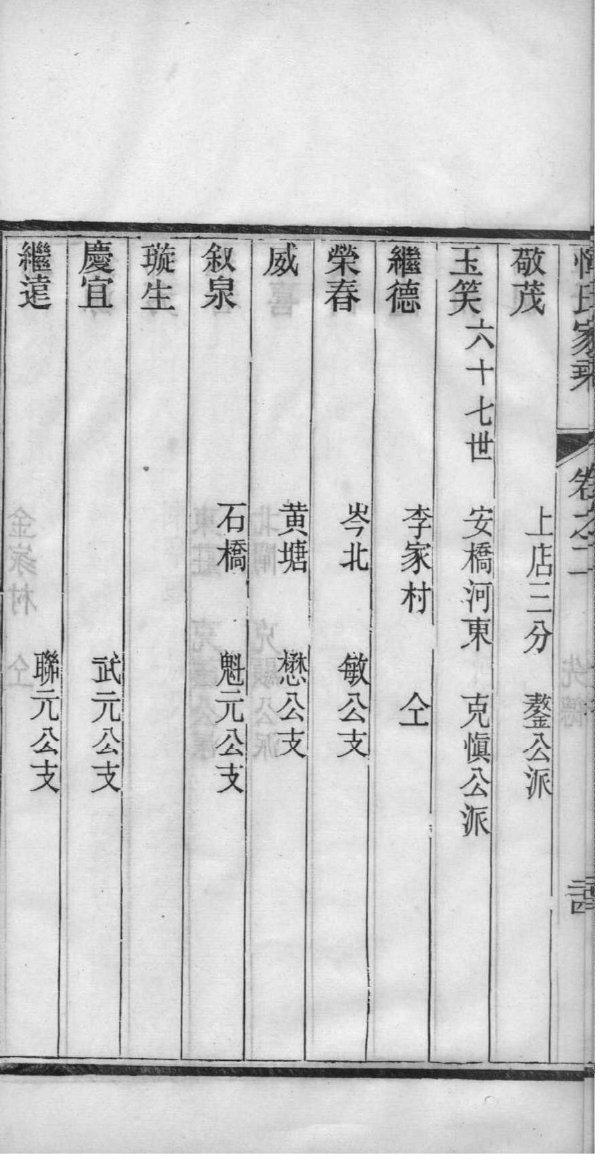 惲氏家乘 卷之二
敬茂 上店三分 鏊公派
玉笑 六十七世 安橋河東 克愼公派
繼德 李家村 仝
榮春 岑北 敏公支
威 黃塘 懋公支
叙泉 石橋 魁元公支
璇生
慶宜 武元公支
繼遠 聯元公支